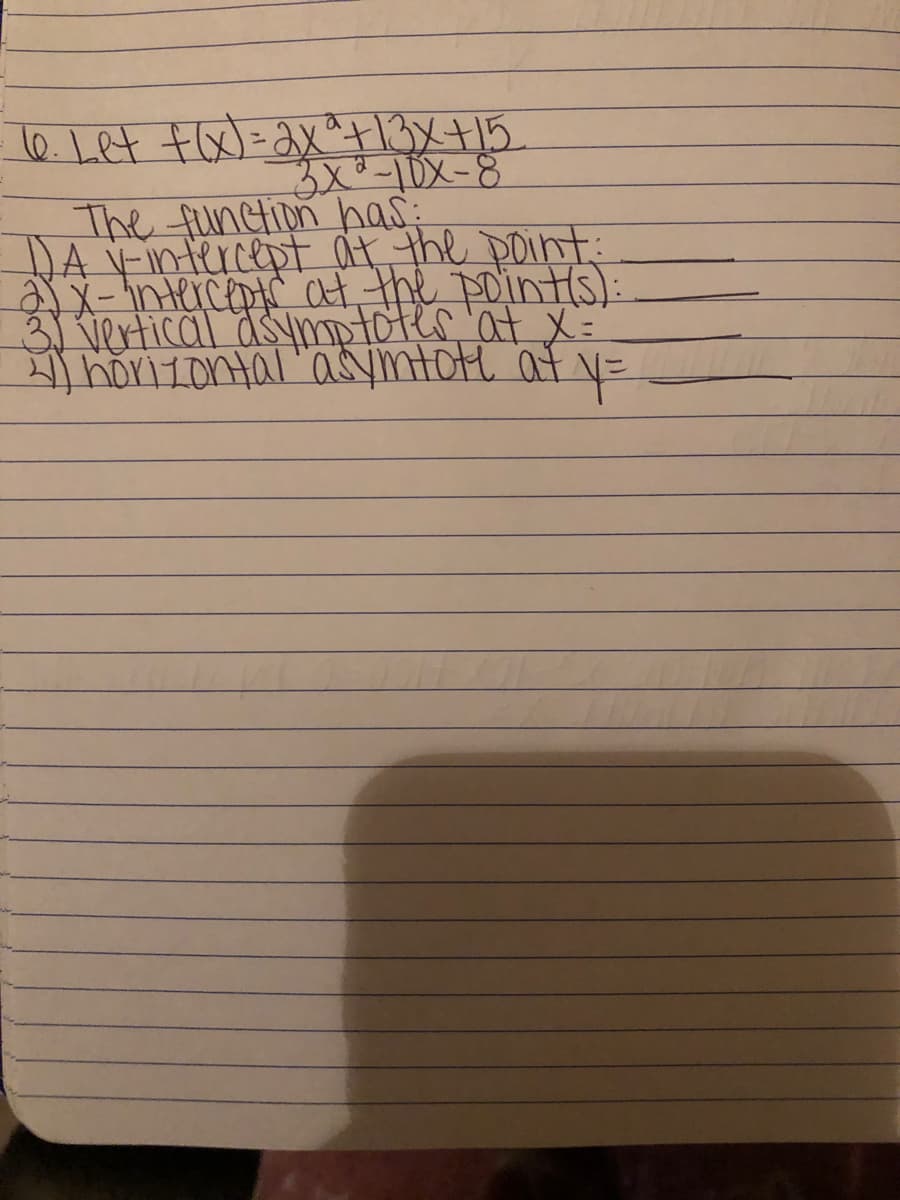 6. Let f(x)=2x²+13x+15
3x²-10x-8
The function has:
1) A y-intercept at the point:
2) x-intercepts at the point(s):
3) vertical asymptotes at x=
4) horizontal asymtote at y=